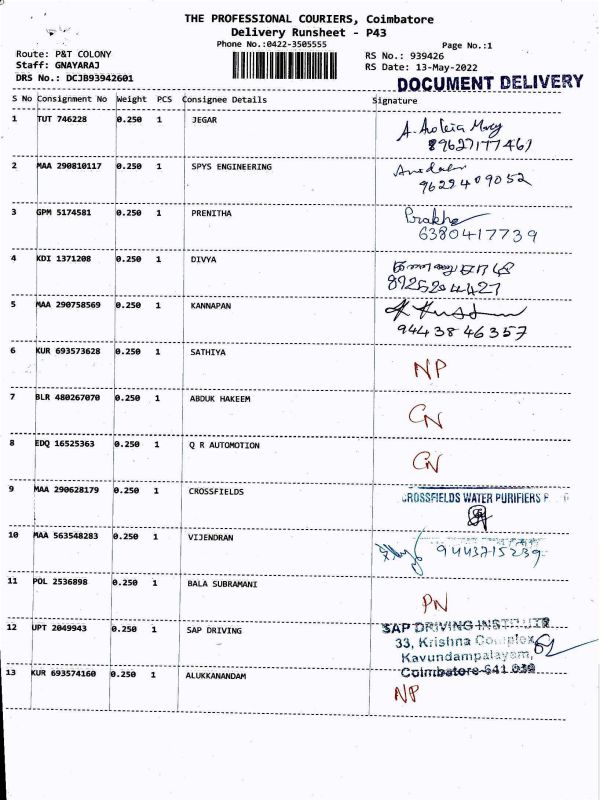 THE PROFESSIONAL COURIERS, Coimbatore
Delivery Runsheet - P43
Phone No.:0422-3505555
Page No.:1
Route: P&T COLONY
Staff: GNAYARAJ
DRS No.: DCJB93942601
RS No.: 939426
RS Date: 13-May-2022
DOCUMENT DELIVERY
S No Consignment No Weight PCS Consignee Details Signature
1 TUT 746228 0.250 1 JEGAR
89627177461
2 MAA 290810117 0.250 1 SPYS ENGINEERING
9629409052
3 GPM 5174581 0.250 1 PRENITHA
6380417739
4 KDI 1371208 0.250 1 DIVYA
8925204427
5 MAA 290758569 0.250 1 KANNAPAN
9443846357
6 KUR 693573628 0.250 1 SATHIYA NP
7 BLR 480267070 0.250 1 ABDUK HAKEEM CN
8 EDQ 16525363 0.250 1 Q R AUTOMOTION CN
9 MAA 290628179 0.250 1 CROSSFIELDS CROSSFIELDS WATER PURIFIERS P
10 MAA 563548283 0.250 1 VIJENDRAN 9443715239
11 POL 2536898 0.250 1 BALA SUBRAMANI PN
12 UPT 2049943 0.250 1 SAP DRIVING SAP DRIVING INSTITUTE
33, Krishna Complex,
Kavundampalayam,
Coimbatore-641 030
13 KUR 693574160 0.250 1 ALUKKANANDAM NP